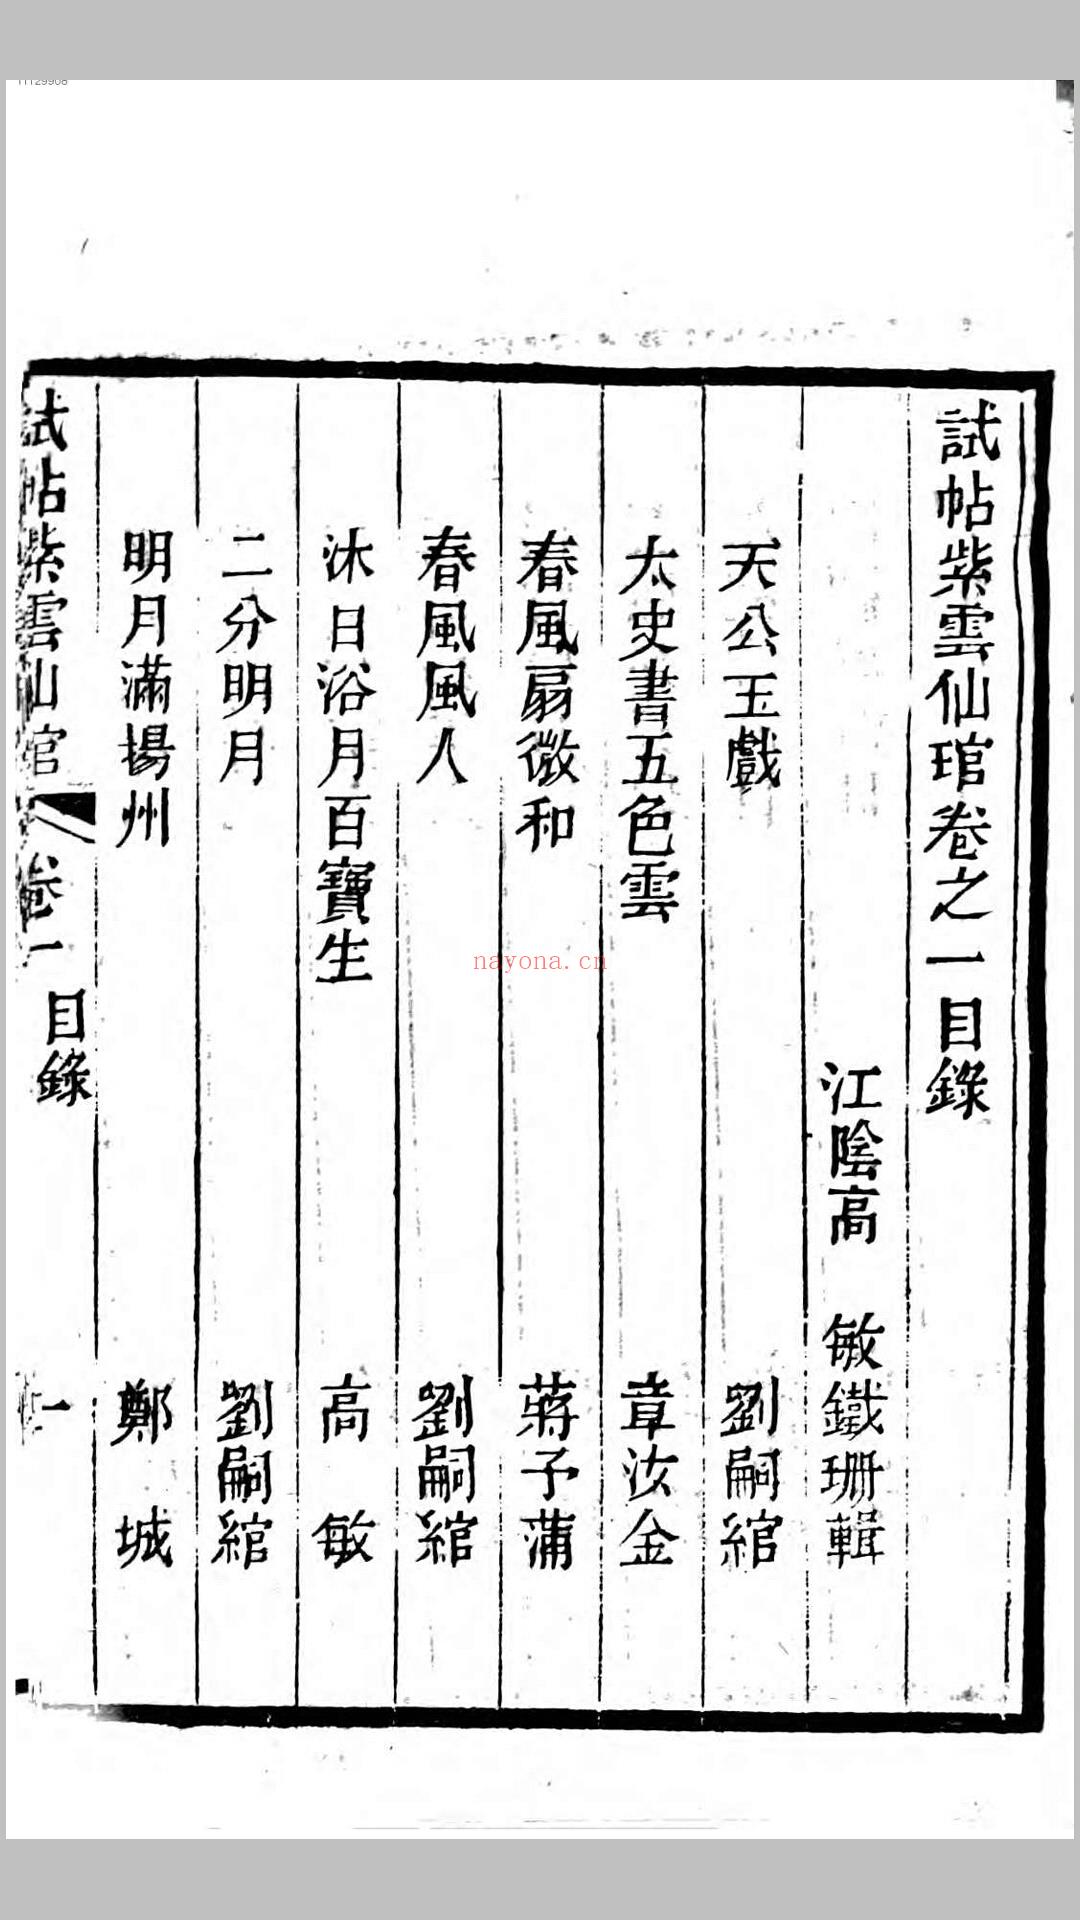 11129908
試帖紫雲仙琯卷之一目錄
江陰高　敏鐵珊輯
天公玉戲　劉嗣綰
太史書五色雲　章汝金
春風扇微和　蔣子蒲
春風風人　劉嗣綰
沐日浴月百寶生　高　敏
二分明月　劉嗣綰
明月滿揚州　鄭　城
試帖紫雲仙琯　卷一　目錄　一
nayona.cn